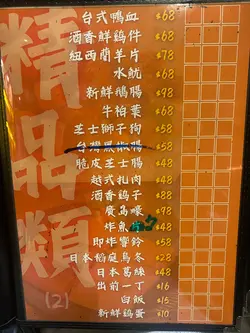 精品類
(2)
台式鴨血 $68
酒香鮮鵝件 $68
紐西蘭羊片 $78
水魷 $68
新鮮鵝腸 $98
牛柏葉 $68
芝士獅子狗 $58
台灣黑椒腸 $58
脆皮芝士腸 $48
越式扎肉 $48
酒香鵝子 $88
廣島蠔 $98
炸魚 $48
即炸響鈴 $58
日本稻庭烏冬 $28
日本葛絲 $48
出前一丁 $16
白飯 $15
新鮮鷄蛋 $10